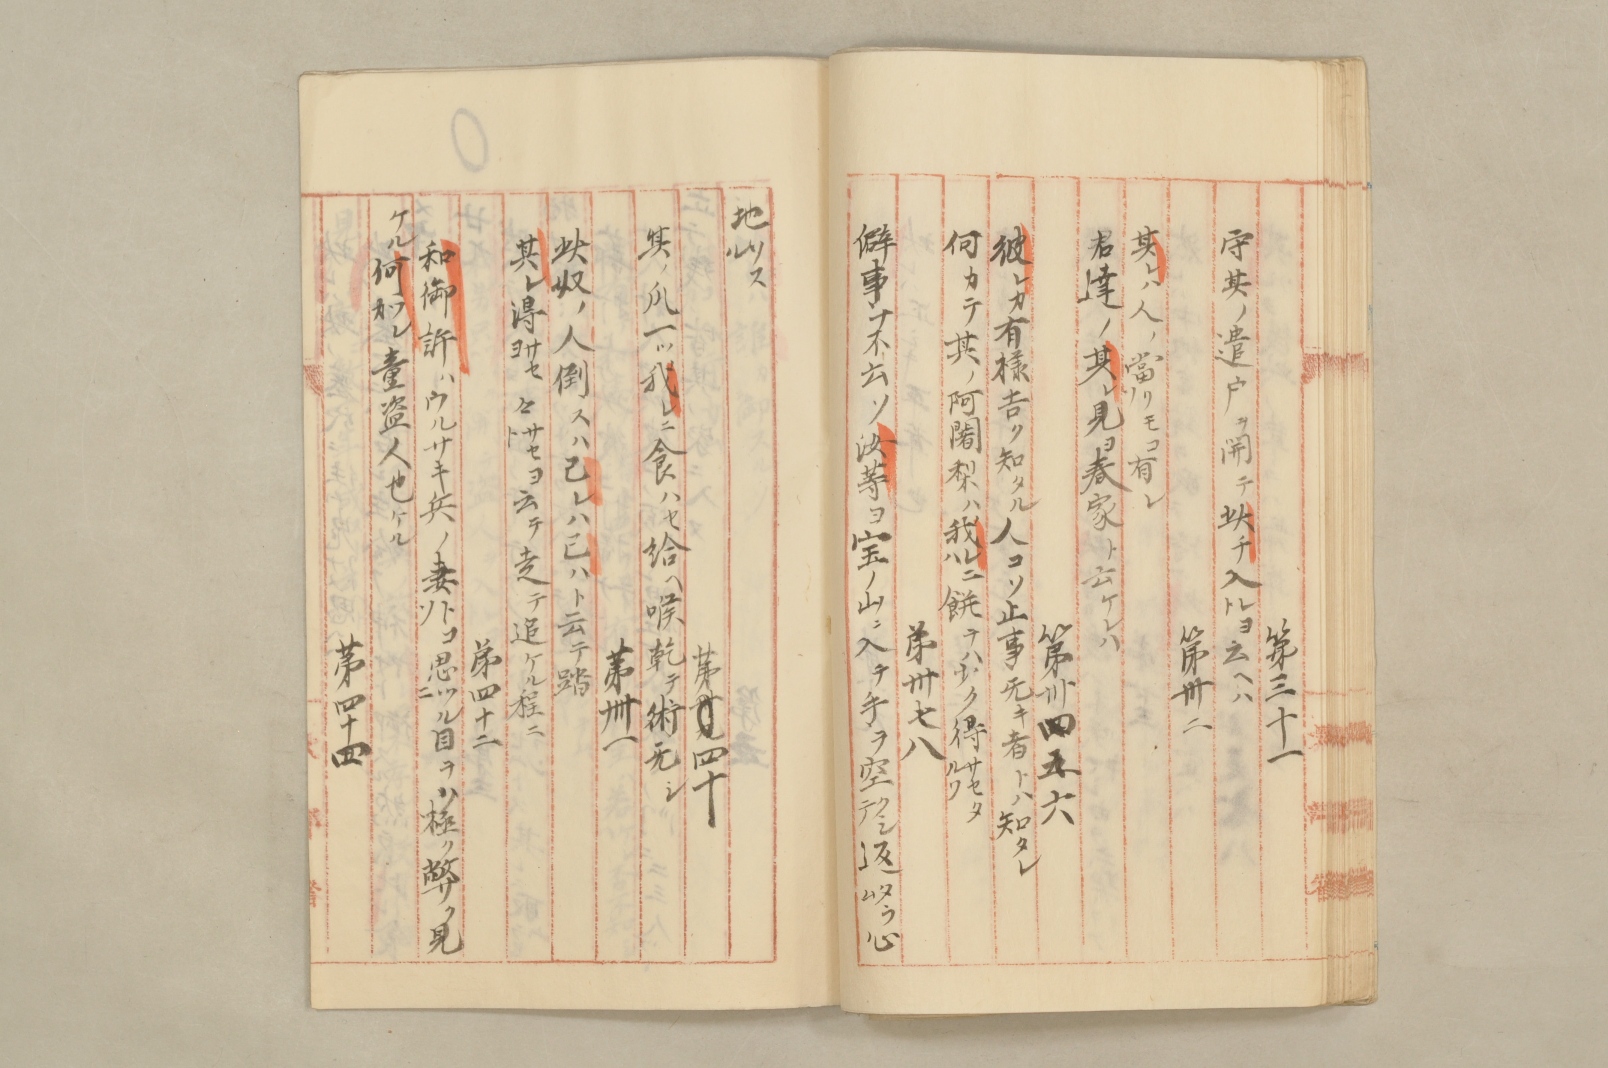 第三十一
守其ノ遣戸ヲ開テ此チ入レトヨ云ヘハ
第卅二
其レハ人ノ當リソモコ有レ
君達ノ其レ見ヨ春家ト云ケレハ
第卅四五六
彼レカ有様吉ク知タル人コソ止事无キ者トハ知タレ
何カテ其ノ阿闍梨ハ我レニハ餅ヲハ クハ得サセタルソ
第卅七八
僻事ナ不云ソ汝等ヨ宝ノ山ニ入テ手ヲ空クシテ返タラム心
地リスル
第四十
其ノ爪一ツ我レニ食ハセ給ヘ喉乾テ術无シ
第卅一
此奴ノ人倒スハ己レハ己ハト云テ踏
其レ得サセヨ々サセヨト云テ走テ追ケル程ニ
第四十二
和御許ハウルサキ兵ノ妻トコソ思ツルニ目ヲハ極ク弊サク見
ケル何カラレ童盗人也ケル
第四十四